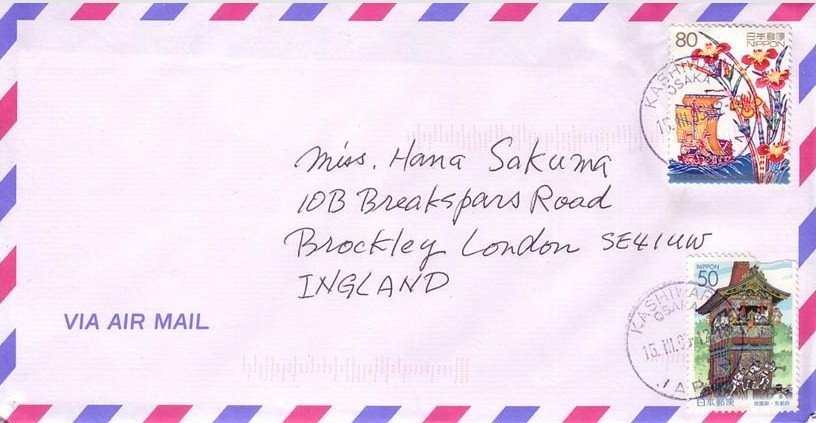 80 日本郵便
NIPPON
KASHIWARA
OSAKA
Miss. Hana Sakuma
10B Breakspars Road
Brockley London SE41UW
INGLAND
VIA AIR MAIL
NIPPON
50
KASHIWARA
OSAKA
15.III.
JAPAN
日本郵便